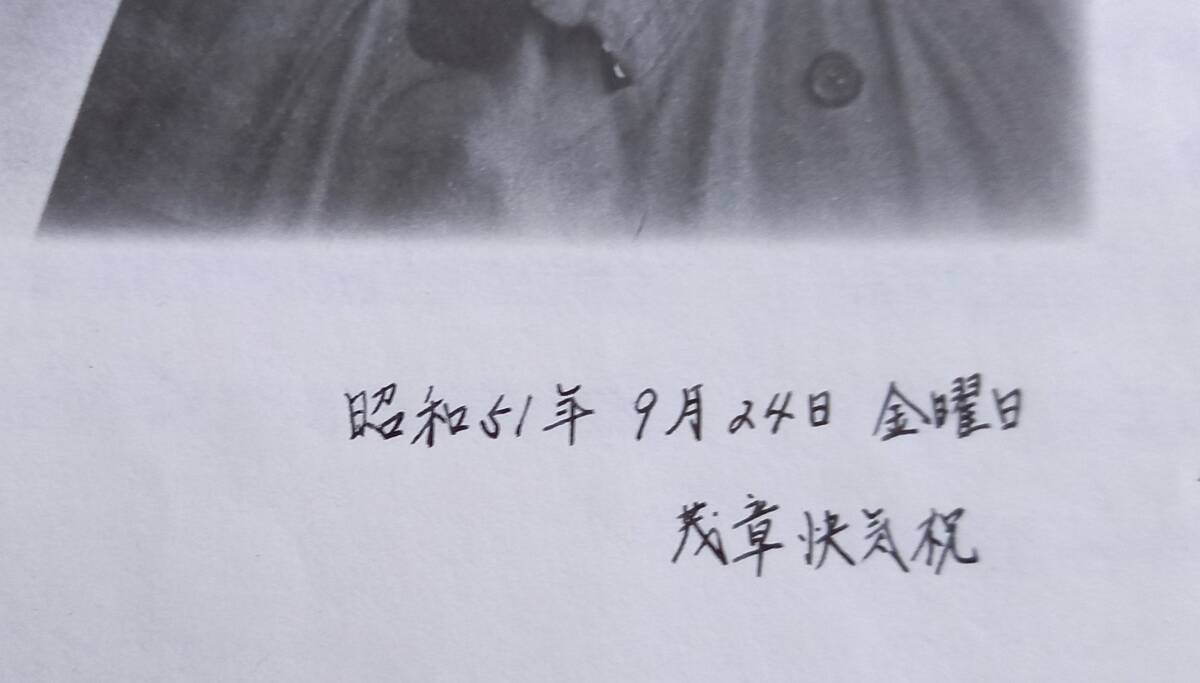 昭和51年 9月24日 金曜日
茂章快気祝